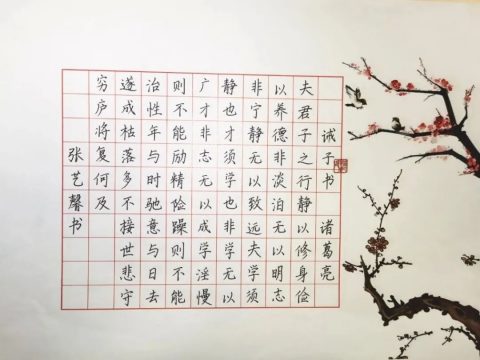 诫子书 诸葛亮
夫君子之行静以修身俭
以养德非淡泊无以明志
非宁静无以致远夫学须
静也才须学也非学无以
广才非志无以成学淫慢
则不能励精险躁则不能
治性年与时驰意与日去
遂成枯落多不接世悲守
穷庐将复何及
张艺馨书